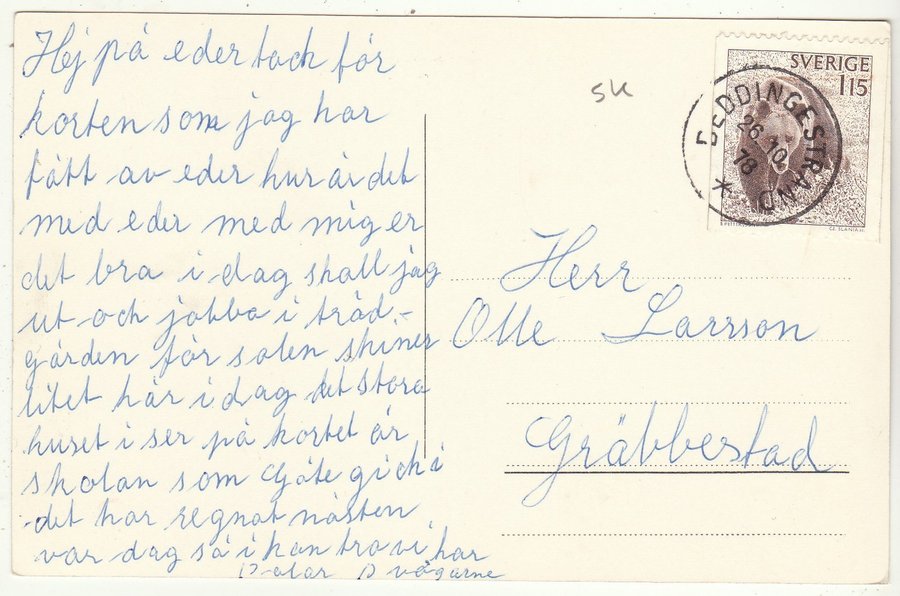 Hej på eder tack för
korten som jag har
fått av eder hur är det
med eder med mig er
det bra i dag skall jag
ut och jobba i träd-
gården för solen skiner
litet här i dag det stora
huset i ser på kortet är
skolan som Göte gick i
det har regnat nästen
var dag så i kan tro vi har
på vägarne
SK
SVERIGE
115
BEDDINGESTRAND
26 10
78
CZ. SLANIA SC.
Herr
Olle Larsson
Gräbbestad